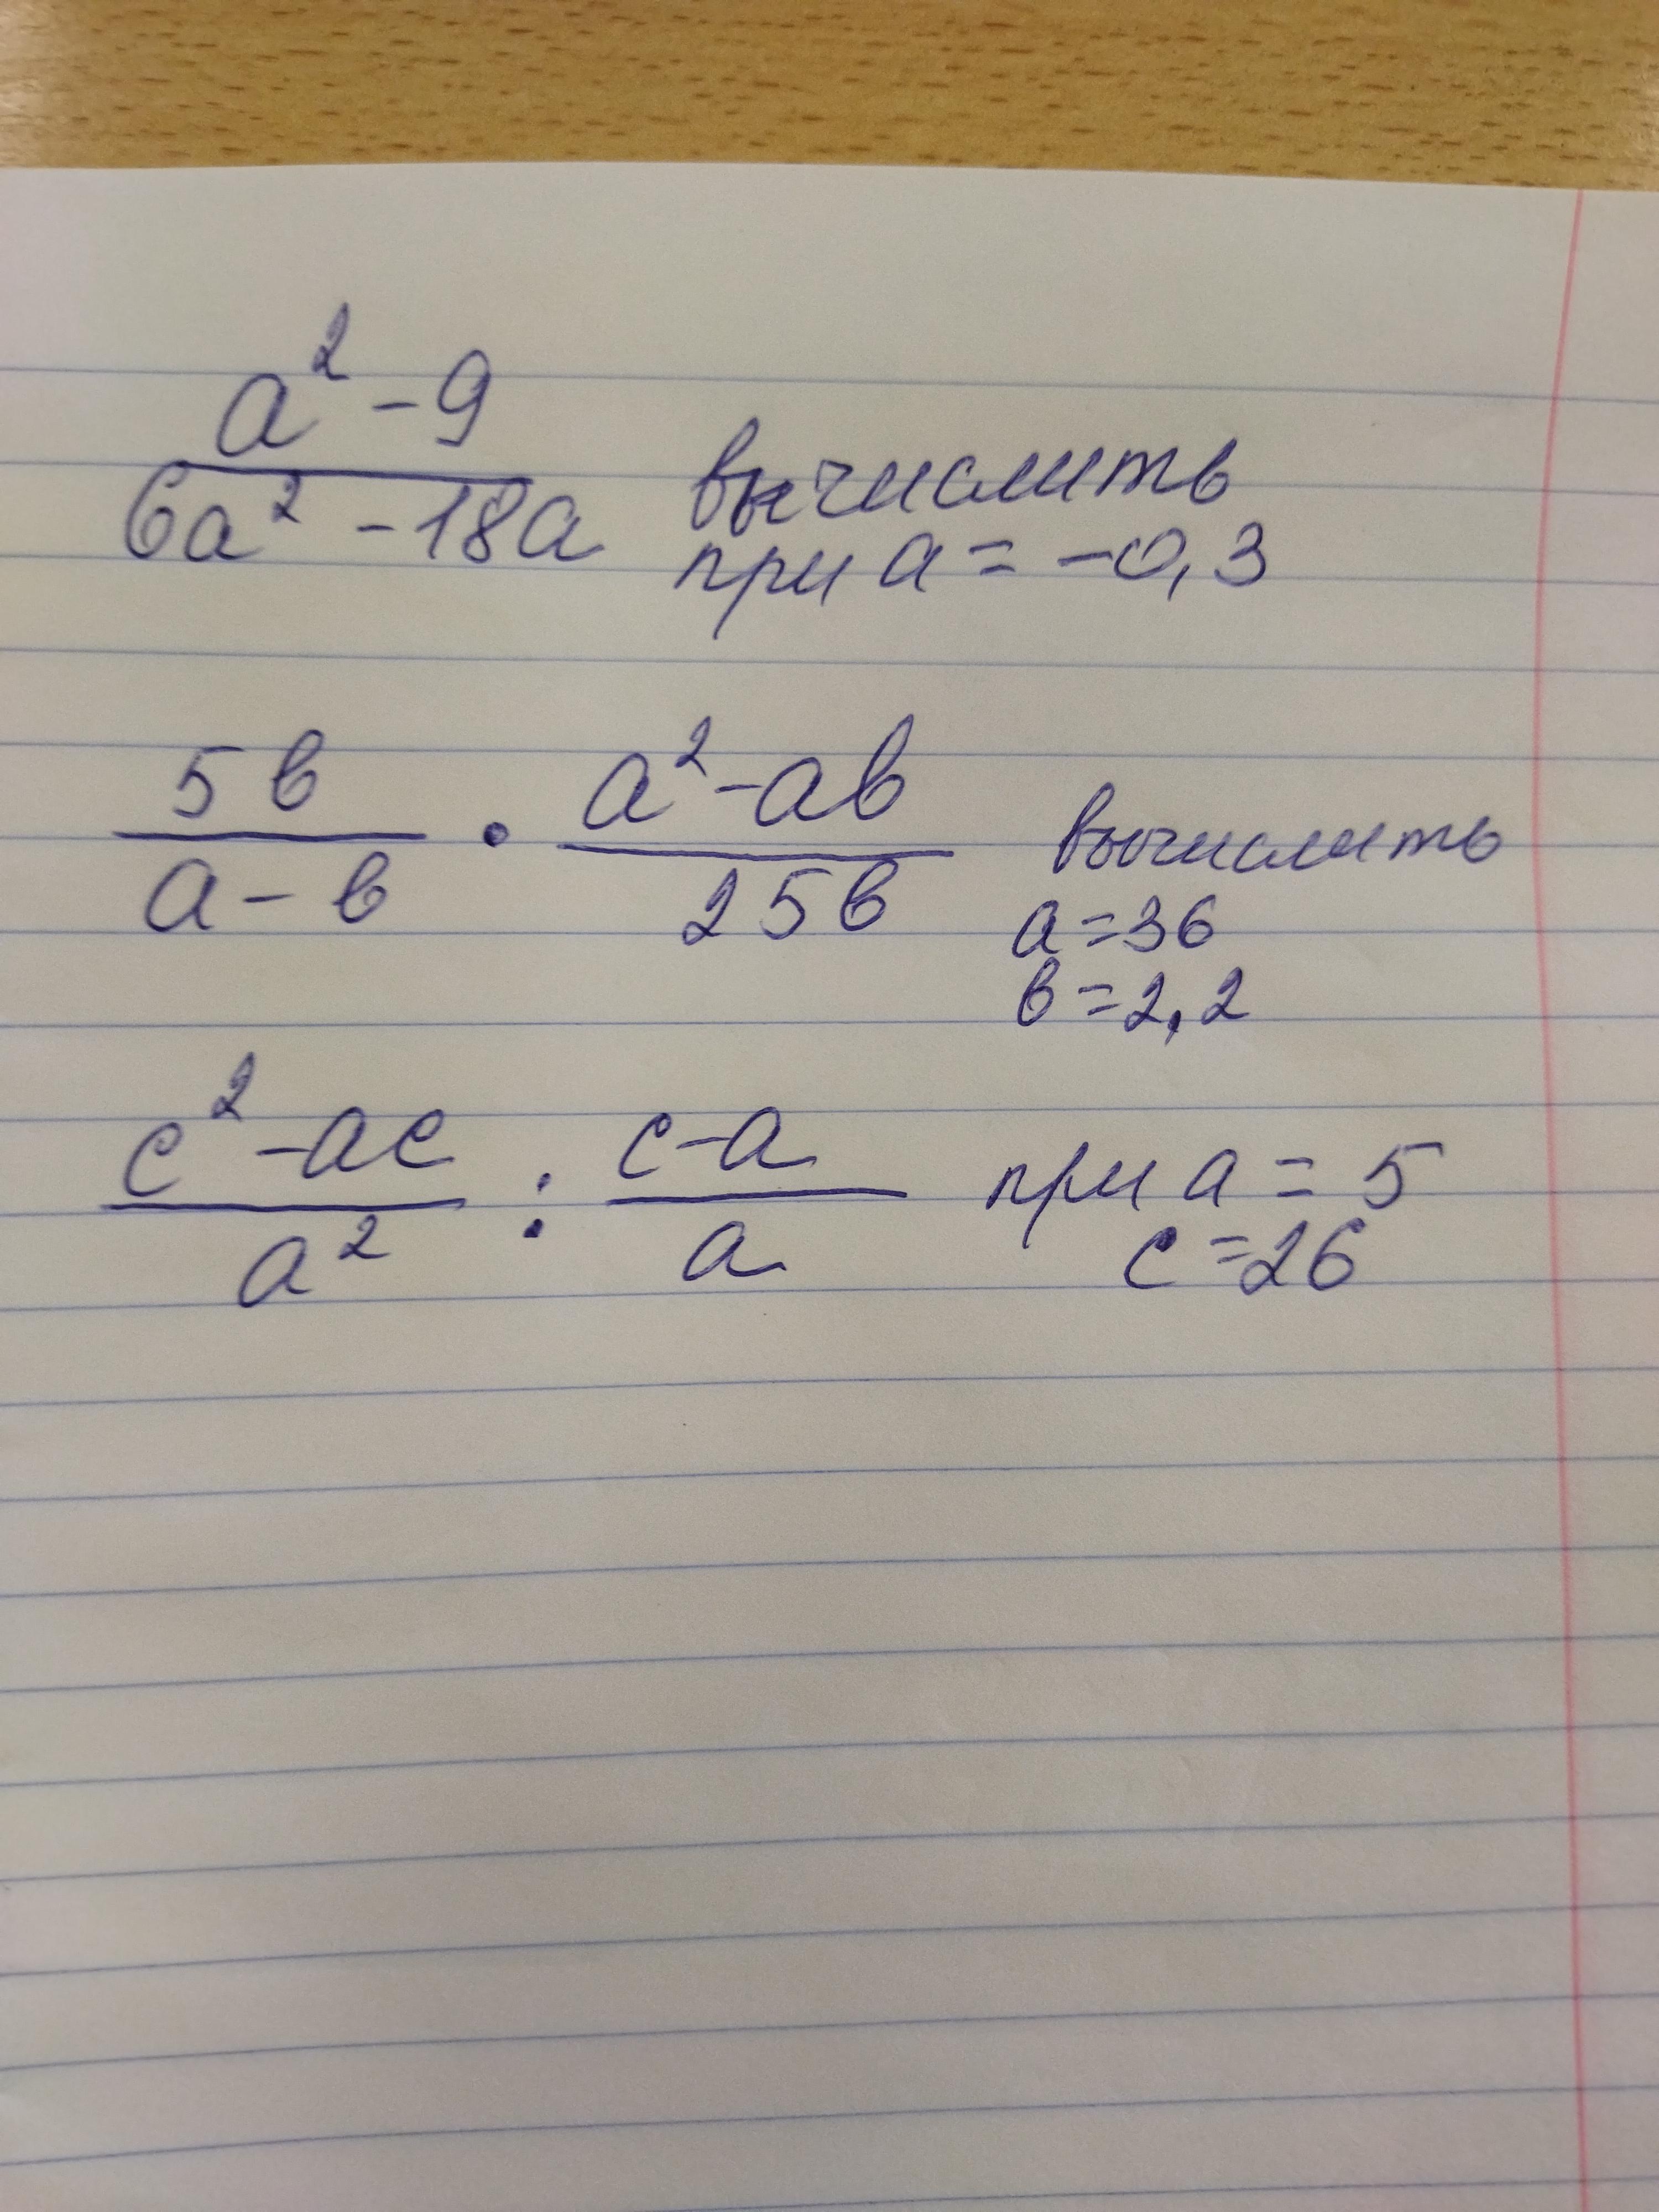 a² - 9
6a² - 18a
вычислить
при a = -0,3
5в
a - в
·
a² - aв
25в
вычислить
a = 36
в = 2,2
c² - ac
a²
:
c - a
a
при a = 5
c = 26